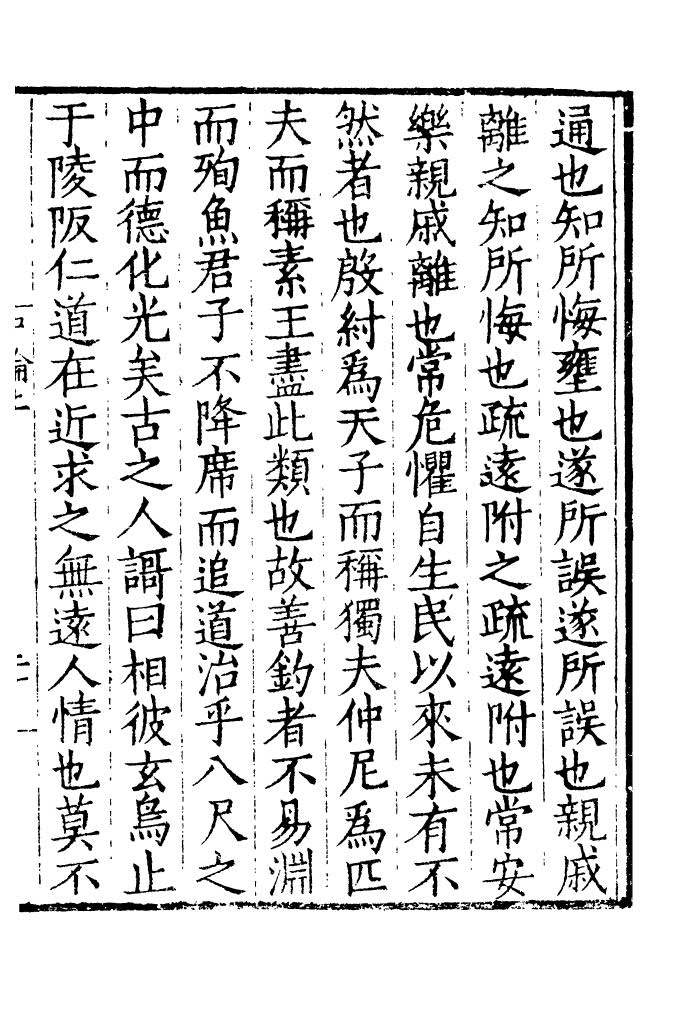 通也知所悔壅也遂所誤遂所誤也親戚
離之知所悔也疏遠附之疏遠附也常安
樂親戚離也常危懼自生民以來未有不
然者也殷紂爲天子而稱獨夫仲尼爲匹
夫而稱素王盡此類也故善釣者不易淵
而殉魚君子不降席而追道治乎八尺之
中而德化光矣古之人謌曰相彼玄鳥止
于陵阪仁道在近求之無遠人情也莫不